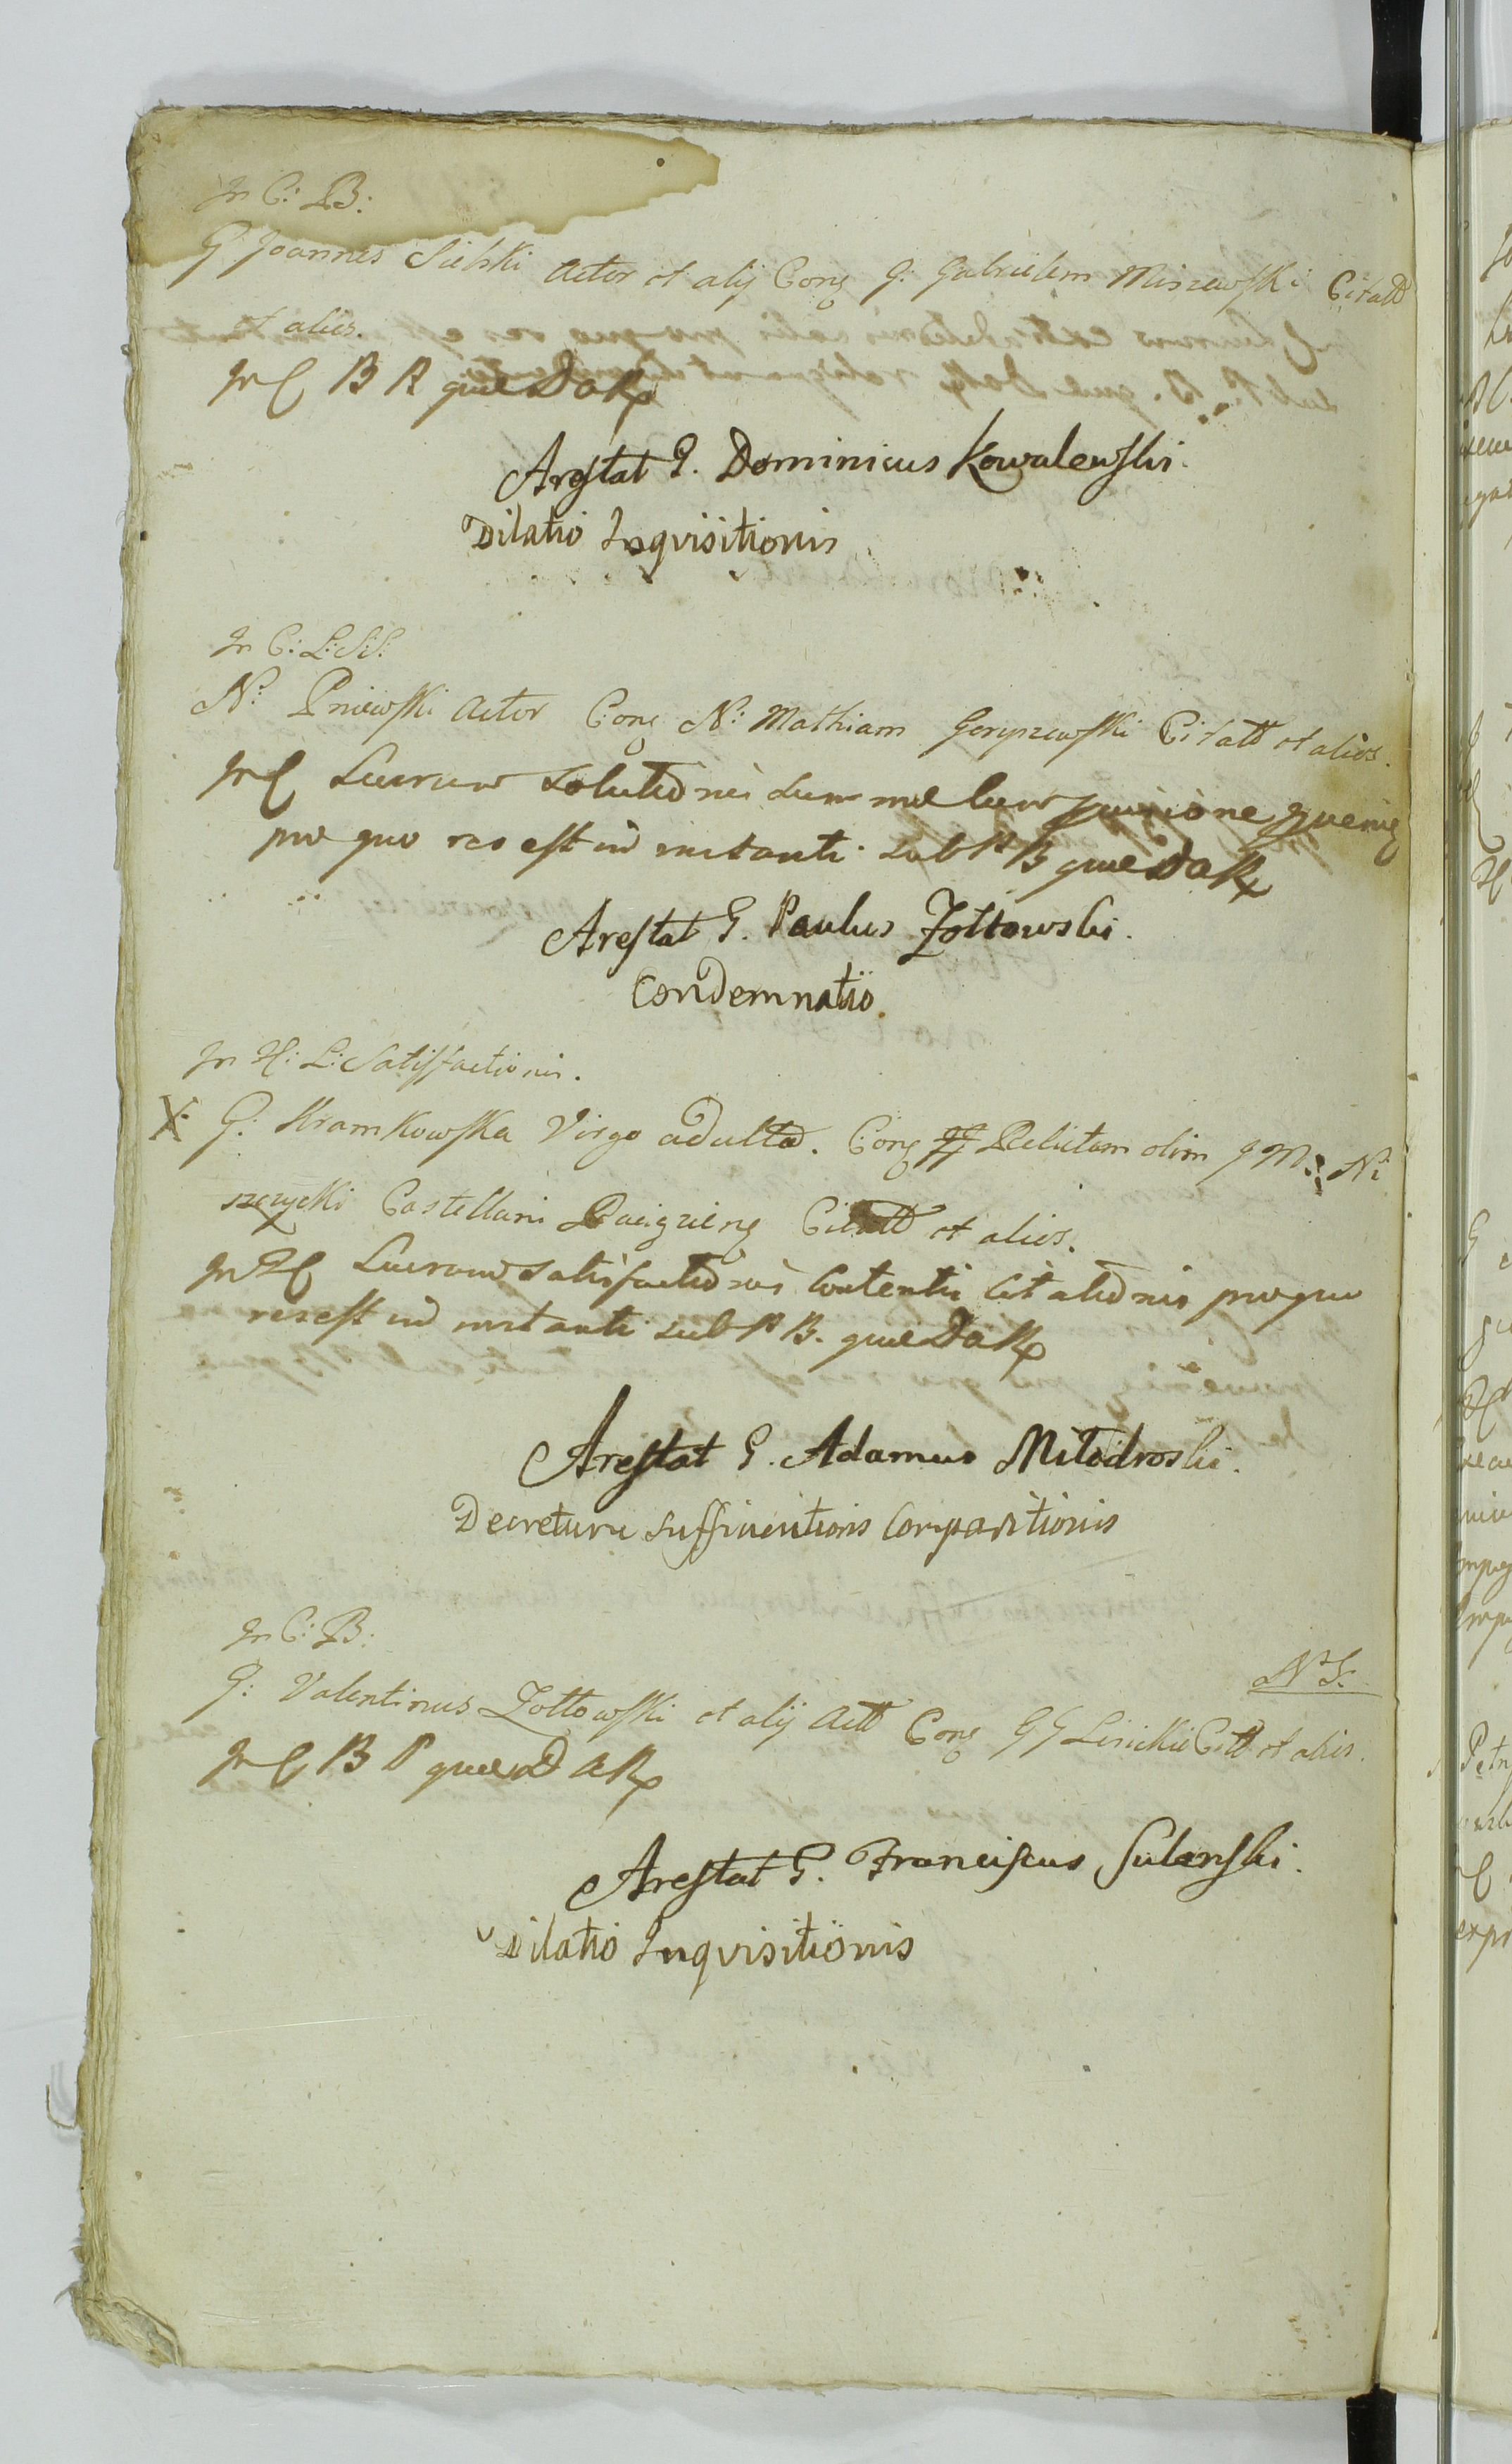 In C: B:
G: Joannes Sielski Actor et alij Conq G: Gabrielem Miszewski Citatt
et alios.
In C B P quae DaRx
Arestat G. Dominicus Kowalewski.
Dilatio Inquisitionis
In C: L: S:
N: Pniewski Actor Conq N: Mathiam Gorpzewski Citatt et alios.
In C Lucrum solutionis summae cum
pro quo res est in instanti sub P B quae DaRx
Arestat G. Paulus Zołtowski.
Condemnatio.
In H: L: Satisfactionis.
X G: Kramkowska Virgo adulta. Conq Relictam olim G M: Ni
szczycki Castellani Raciązieng Citatt et alios.
In H C Lucrum satisfactionis contentis citationis pro quo
res est in instanti sub P B. quae DaRx
Arestat G. Adamus Milodroski.
Decretum suffinentionis Comparitionis
In C: B:
N S:
G: Valentinus Zołtowski et alij Actt Conq GG Lisickie Citt et alios.
In C B P quae DaRx
Arestat G. Franciscus Sulenski.
Dilatio Inquisitionis